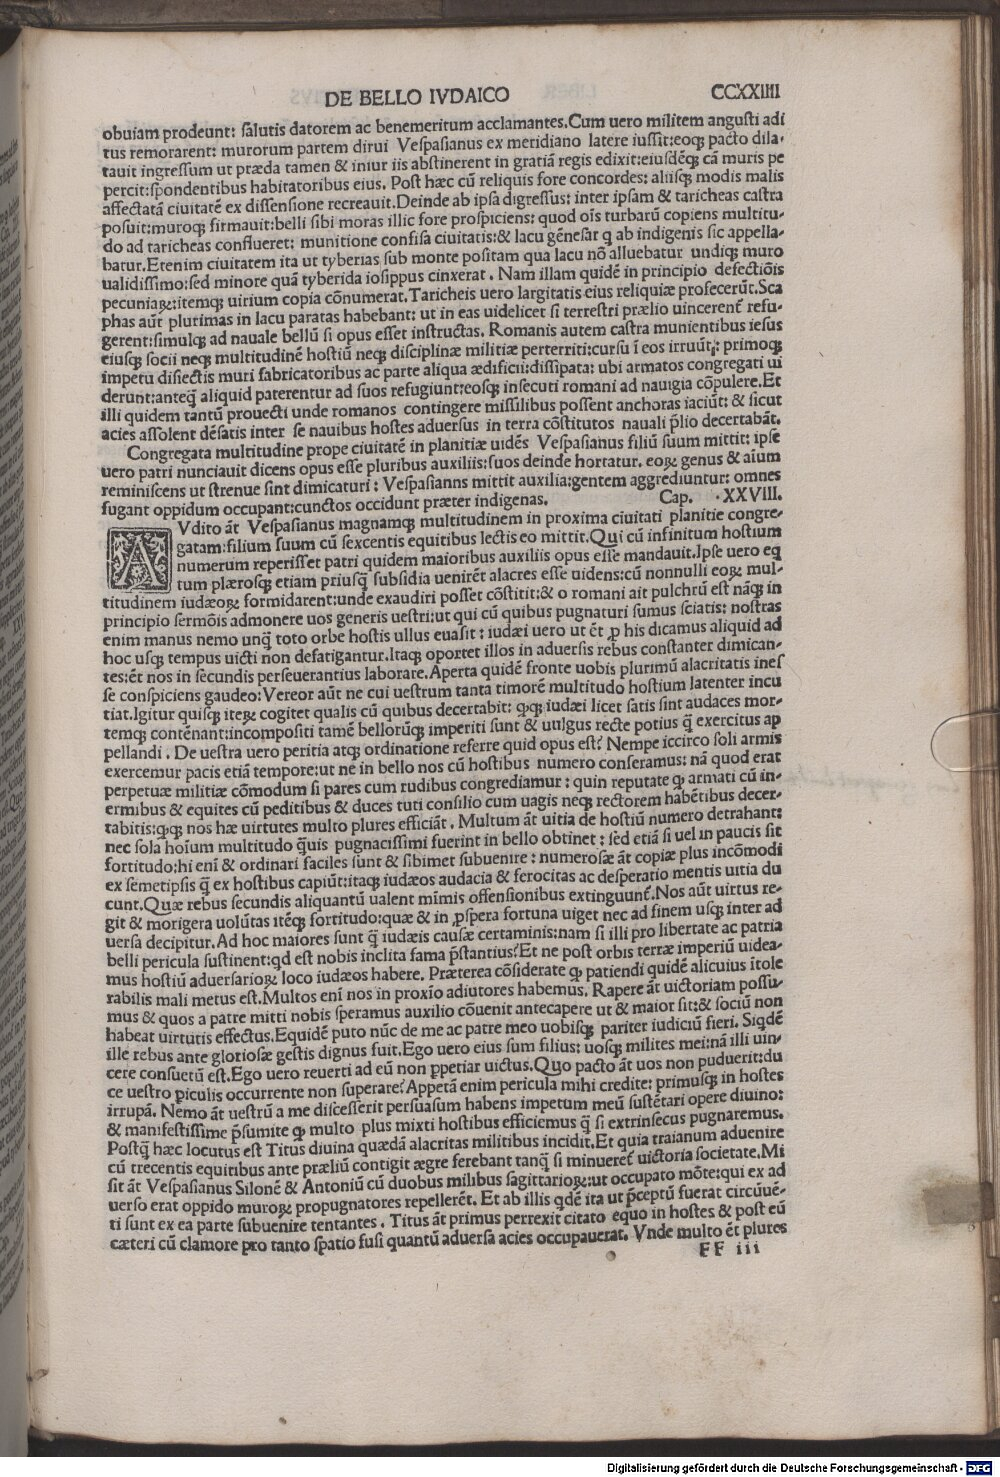 DE BELLO IVDAICO CCXXIIII
obuiam prodeunt: salutis datorem ac benemeritum acclamantes. Cum uero militem angusti adi
tus remorarent: murorum partem dirui Vespasianus ex meridiano latere iussit: eoq; pacto dila-
tauit ingressum ut præda tamen & iniuriis abstinerent in gratiā regis edixit: eiusdēq; cā muris pe
percit: spondentibus habitatoribus eius. Post hæc cū reliquis fore concordes: aliisq; modis malis
affectatā ciuitatē ex dissensione recreauit. Deinde ab ipsa digressus: inter ipsam & taricheas castra
posuit: muroq; firmauit: belli sibi moras illic fore prospiciens: quod oīs turbarū copiens multitu-
do ad taricheas conflueret: munitione confisa ciuitatis: & lacu gēnesar q ab indigenis sic appella-
batur. Etenim ciuitatem ita ut tyberias sub monte positam qua lacu nō alluebatur undiq; muro
ualidissimo: sed minore quā tyberida iosippus cinxerat. Nam illam quidē in principio defectiōis
pecuniaꝝ: itemq; uirium copia cōnumerat. Taricheis uero largitatis eius reliquiæ profecerūt. Sca
phas aūt plurimas in lacu paratas habebant: ut in eas uidelicet si terrestri prælio uincerent̄ refu-
gerent: simulq; ad nauale bellū si opus esset instructas. Romanis autem castra munientibus iesus
eiusq; socii neq; multitudinē hostiū neq; disciplinæ militiæ perterriti: cursu ī eos irruūt: primoq;
impetu disiectis muri fabricatoribus ac parte aliqua ædificii: dissipata: ubi armatos congregati ui
derunt: anteq̄ aliquid paterentur ad suos refugiunt: eosq; insecuti romani ad nauigia cōpulere. Et
illi quidem tantū prouecti unde romanos contingere missilibus possent anchoras iaciūt: & sicut
acies assolent dēsatis inter se nauibus hostes aduersus in terra cōstitutos nauali p̄lio decertabāt.
Congregata multitudine prope ciuitatē in planitiæ uidēs Vespasianus filiū suum mittit: ipse
uero patri nunciauit dicens opus esse pluribus auxiliis: suos deinde hortatur. eoꝝ genus & aīum
reminiscens ut strenue sint dimicaturi: Vespasianns mittit auxilia: gentem aggrediuntur: omnes
fugant oppidum occupant: cunctos occidunt præter indigenas. Cap. .XXVIII.
AVdito āt Vespasianus magnamq; multitudinem in proxima ciuitati planitie congre-
gatam: filium suum cū sexcentis equitibus lectis eo mittit. Qui cū infinitum hostium
numerum reperisset patri quidem maioribus auxiliis opus esse mandauit. Ipse uero eq
tum plærosq; etiam priusq̄ subsidia uenirēt alacres esse uidens: cū nonnulli eoꝝ mul-
titudinem iudæoꝝ formidarent: unde exaudiri posset cōstitit: & o romani ait pulchrū est nāq; in
principio sermōis admonere uos generis uestri: ut qui cū quibus pugnaturi sumus sciatis: nostras
enim manus nemo unq̄ toto orbe hostis ullus euasit: iudæi uero ut ēt ꝓ his dicamus aliquid ad
hoc usq; tempus uicti non defatigantur. Itaq; oportet illos in aduersis rebus constanter dimican-
tes: ēt nos in secundis perseuerantius laborare. Aperta quidē fronte uobis plurimū alacritatis ines
se conspiciens gaudeo: Vereor aūt ne cui uestrum tanta timorē multitudo hostium latenter incu
tiat. Igitur quisq; iteꝝ cogitet qualis cū quibus decertabit: ꝙq; iudæi licet satis sint audaces mor-
temq; contēnant: incompositi tamē bellorūq; imperiti sunt & uulgus recte potius q̄ exercitus ap
pellandi. De uestra uero peritia atq; ordinatione referre quid opus est? Nempe iccirco soli armis
exercemur pacis etiā tempore: ut ne in bello nos cū hostibus numero conseramus: nā quod erat
perpetuæ militiæ cōmodum si pares cum rudibus congrediamur: quin reputate ꝙ armati cū in-
ermibus & equites cū peditibus & duces tuti consilio cum uagis neq; rectorem habētibus decer-
tabitis: ꝙq; nos hæ uirtutes multo plures efficiāt. Multum āt uitia de hostiū numero detrahant:
nec sola hoīum multitudo q̄uis pugnacissimi fuerint in bello obtinet: sed etiā si uel in paucis sit
fortitudo: hi enī & ordinari faciles sunt & sibimet subuenire: numerosæ āt copiæ plus incōmodi
ex semetipsis q̄ ex hostibus capiūt: itaq; iudæos audacia & ferocitas ac desperatio mentis uitia du
cunt. Quæ rebus secundis aliquantū ualent mīmis offensionibus extinguunt̄. Nos aūt uirtus re-
git & morigera uolūtas itēq; fortitudo: quæ & in ꝓspera fortuna uiget nec ad finem usq; inter ad
uersa decipitur. Ad hoc maiores sunt q̄ iudæis causæ certaminis: nam si illi pro libertate ac patria
belli pericula sustinent: qd est nobis inclita fama p̄stantius? Et ne post orbis terræ imperiū uidea-
mus hostiū aduersarioꝝ loco iudæos habere. Præterea cōsiderate ꝙ patiendi quidē alicuius ītole
rabilis mali metus est. Multos enī nos in proxīo adiutores habemus. Rapere āt uictoriam possu-
mus & quos a patre mitti nobis speramus auxilio cōuenit antecapere ut & maior sit: & sociū non
habeat uirtutis effectus. Equidē puto nūc de me ac patre meo uobisq; pariter iudiciū fieri. Siqdē
ille rebus ante gloriosæ gestis dignus fuit. Ego uero eius sum filius: uosq; milites mei: nā illi uin-
cere consuetū est. Ego uero reuerti ad eū non ꝑpetiar uictus. Quo pacto āt uos non puduerit: du
ce uestro ꝑiculis occurrente non superare? Appetā enim pericula mihi credite: primusq; in hostes
irrupā. Nemo āt uestrū a me discesserit persuasum habens impetum meū sustētari opere diuino:
& manifestissime p̄sumite ꝙ multo plus mixti hostibus efficiemus q̄ si extrinsecus pugnaremus.
Postq̄ hæc locutus est Titus diuina quædā alacritas militibus incidit. Et quia traianum aduenire
cū trecentis equitibus ante præliū contigit ægre ferebant tanq̄ si minueret̄ uictoria societate. Mi
sit āt Vespasianus Silonē & Antoniū cū duobus milibus sagittarioꝝ: ut occupato mōte: qui ex ad
uerso erat oppido muroꝝ propugnatores repellerēt. Et ab illis qdē ita ut p̄ceptū fuerat circūuē-
ti sunt ex ea parte subuenire tentantes. Titus āt primus perrexit citato equo in hostes & post eū
cæteri cū clamore pro tanto spatio fusi quantū aduersa acies occupauerat. Vnde multo ēt plures
FF iii
Digitalisierung gefördert durch die Deutsche Forschungsgemeinschaft - DFG